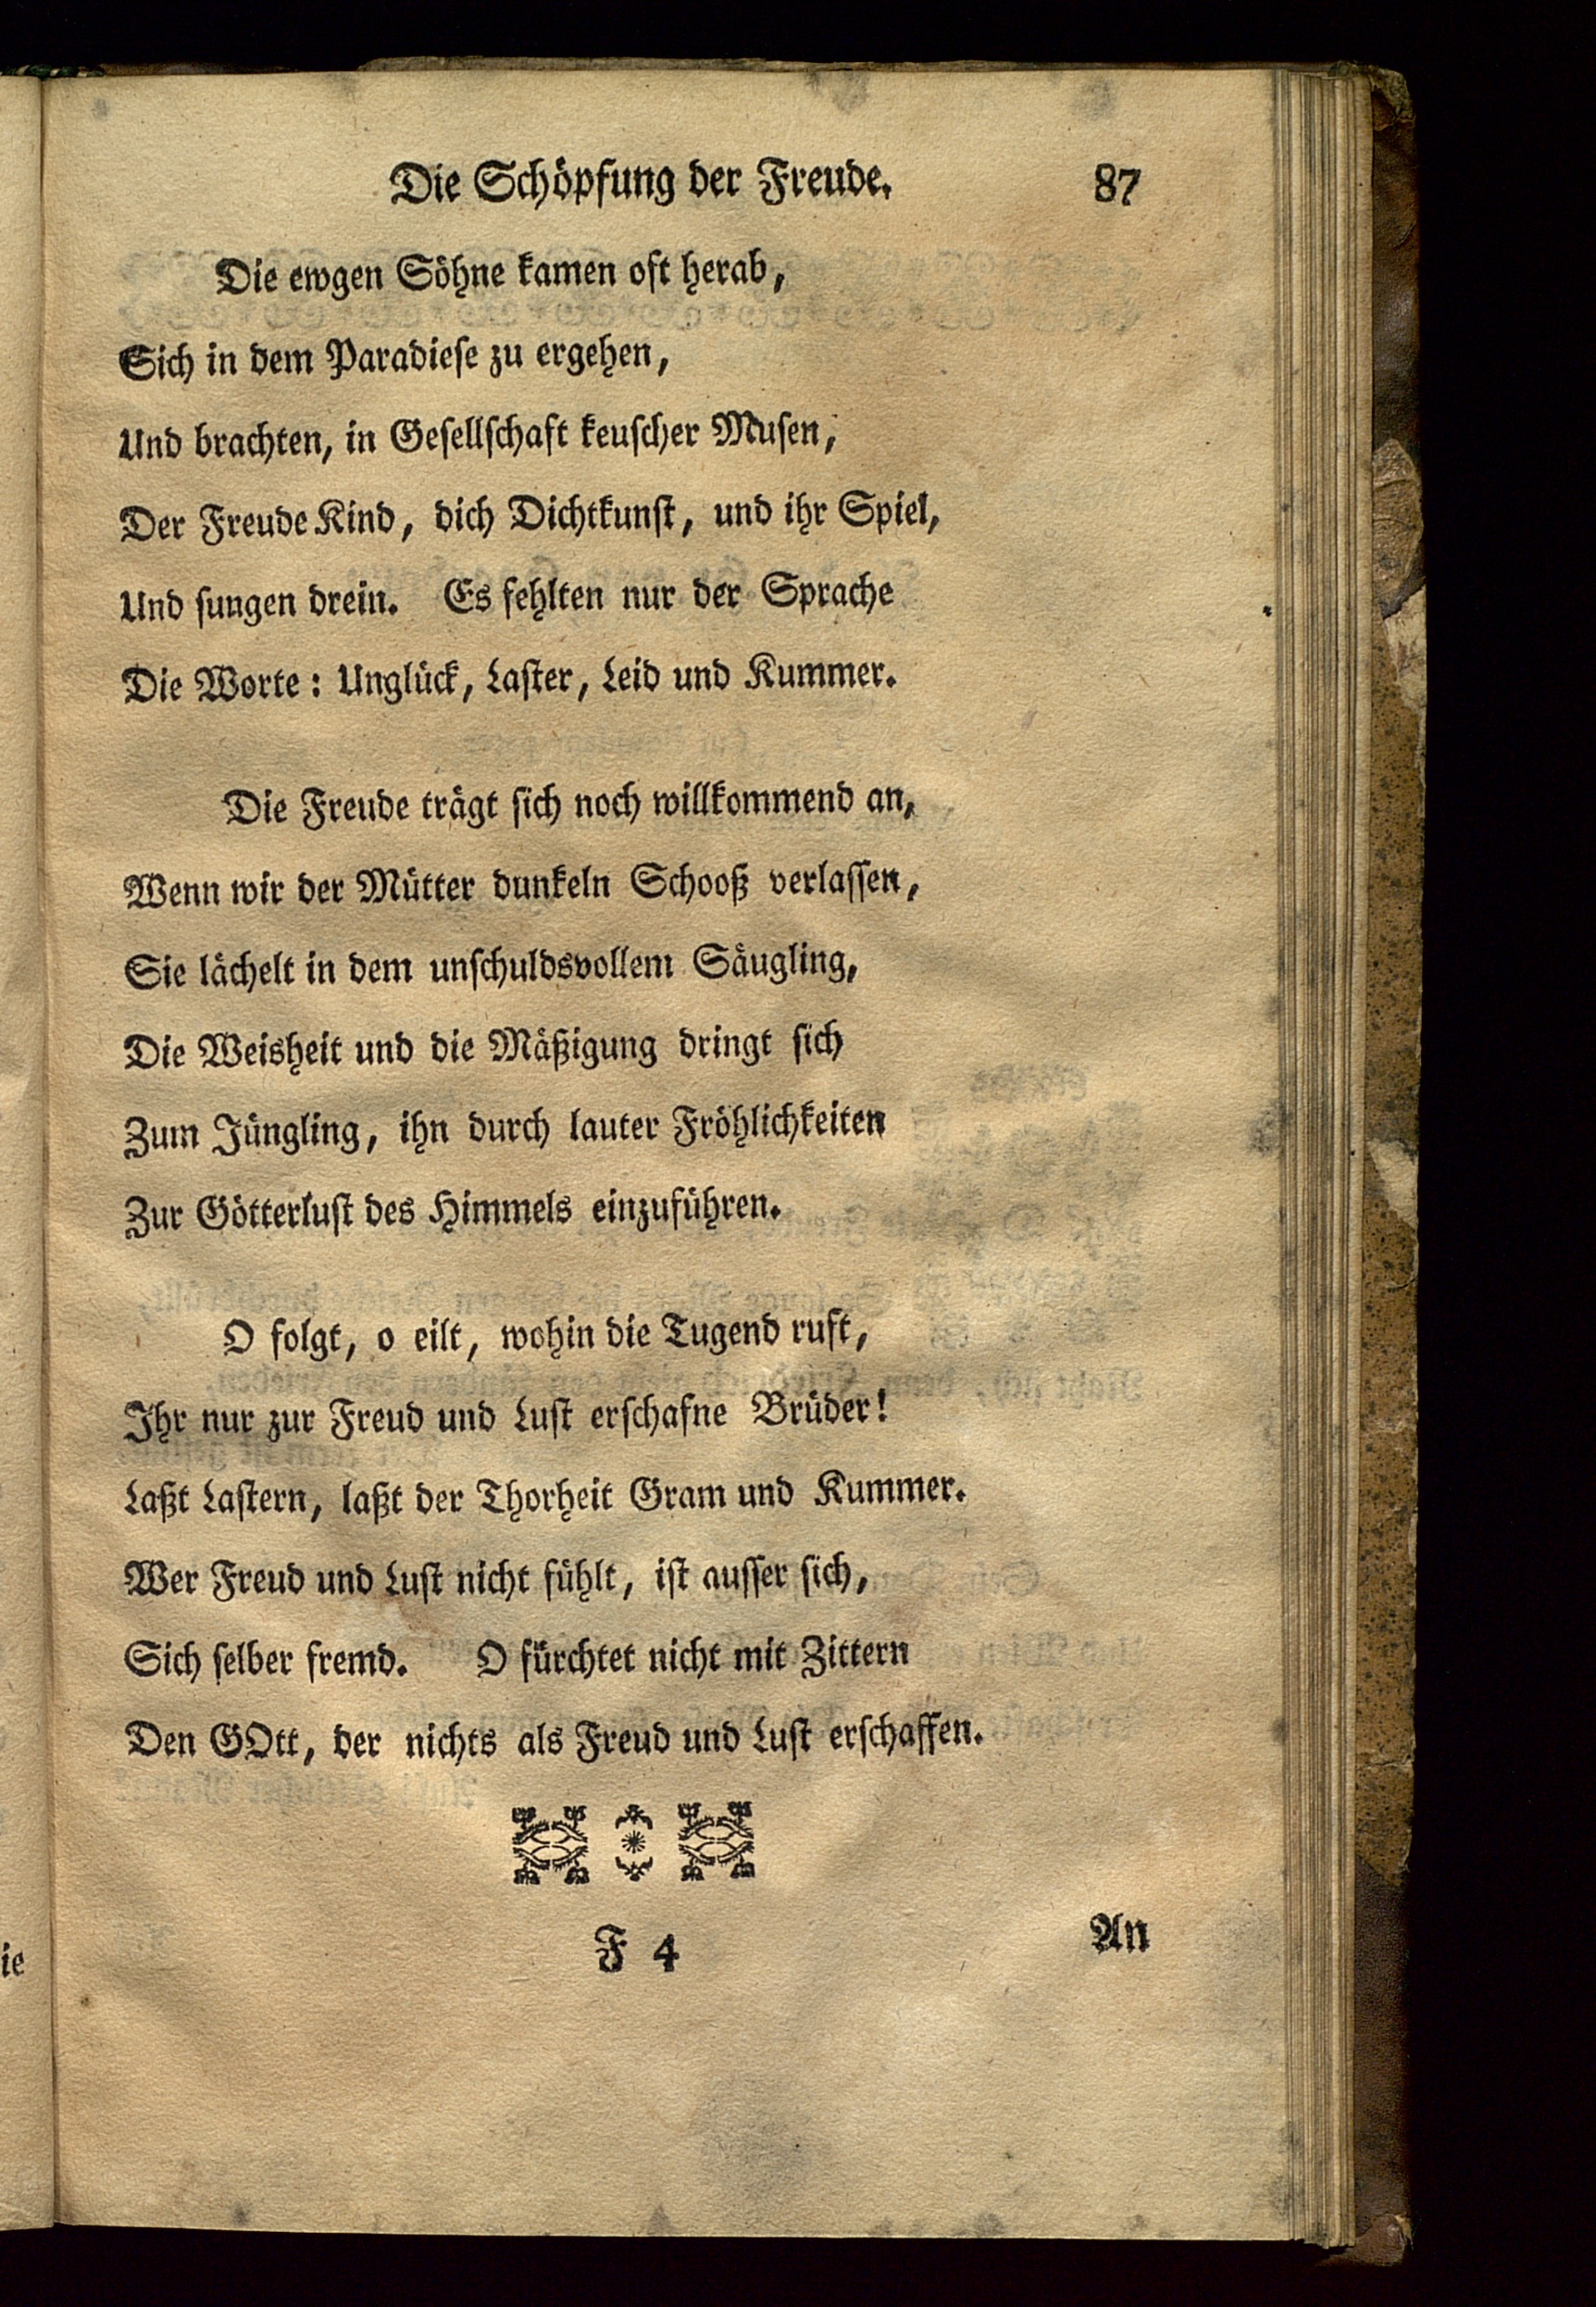 Die Schöpfung der Freude. 87
Die ewgen Söhne kamen oft herab,
Sich in dem Paradiese zu ergehen,
Und brachten, in Gesellschaft keuscher Musen,
Der Freude Kind, dich Dichtkunst, und ihr Spiel,
Und sungen drein. Es fehlten nur der Sprache
Die Worte: Unglück, Laster, Leid und Kummer.
Die Freude trägt sich noch willkommend an,
Wenn wir der Mütter dunkeln Schooß verlassen,
Sie lächelt in dem unschuldsvollem Säugling,
Die Weisheit und die Mäßigung dringt sich
Zum Jüngling, ihn durch lauter Fröhlichkeiten
Zur Götterlust des Himmels einzuführen.
O folgt, o eilt, wohin die Tugend ruft,
Ihr nur zur Freud und Lust erschafne Brüder!
Laßt Lastern, laßt der Thorheit Gram und Kummer.
Wer Freud und Lust nicht fühlt, ist ausser sich,
Sich selber fremd. O fürchtet nicht mit Zittern
Den GOtt, der nichts als Freud und Lust erschaffen.
F 4 An
ie